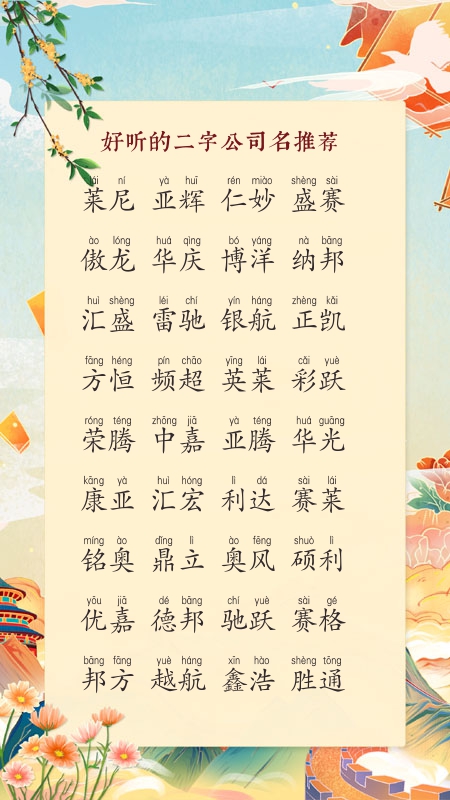 好听的二字公司名推荐
lái ní yà huī rén miào shèng sài
莱尼 亚辉 仁妙 盛赛
ào lóng huá qìng bó yáng nà bāng
傲龙 华庆 博洋 纳邦
huì shèng léi chí yín háng zhèng kǎi
汇盛 雷驰 银航 正凯
fāng héng pín chāo yīng lái cǎi yuè
方恒 频超 英莱 彩跃
róng téng zhōng jiā yà téng huá guāng
荣腾 中嘉 亚腾 华光
kāng yà huì hóng lì dá sài lái
康亚 汇宏 利达 赛莱
míng ào dǐng lì ào fēng shuò lì
铭奥 鼎立 奥风 硕利
yōu jiā dé bāng chí yuè sài gé
优嘉 德邦 驰跃 赛格
bāng fāng yuè háng xīn hào shèng tōng
邦方 越航 鑫浩 胜通